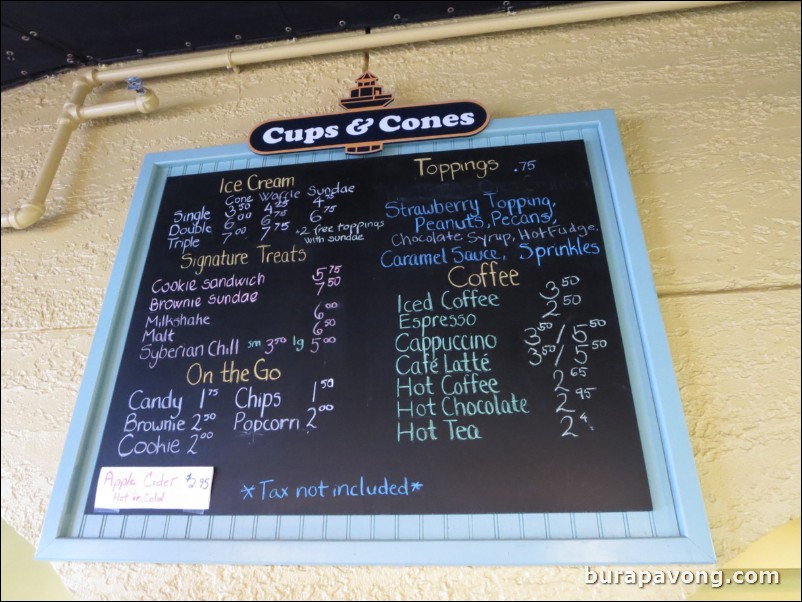 Cups & Cones
Ice Cream
Cone Waffle Sundae
Single 3.50 4.25 4.75
Double 6.00 6.75 6.75
Triple 7.00 7.75 +2 free toppings
with sundae
Signature Treats
Cookie sandwich 5.75
Brownie sundae 7.50
Milkshake 6.00
Malt 6.50
Syberian Chill sm 3.50 lg 5.00
On the Go
Candy 1.75 Chips 1.50
Brownie 2.50 Popcorn 2.00
Cookie 2.00
Apple Cider $2.95
Hot or Cold
Toppings .75
Strawberry Topping,
Peanuts, Pecans,
Chocolate Syrup, Hot Fudge,
Caramel Sauce, Sprinkles
Coffee
Iced Coffee 3.50
Espresso 2.50
Cappuccino 3.50/5.50
Café Latté 3.50/5.50
Hot Coffee 2.65
Hot Chocolate 2.95
Hot Tea 2
*Tax not included*
burapavong.com